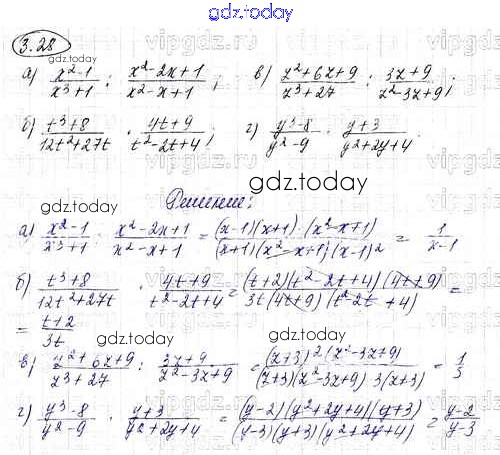 gdz.today
3.28
а) \frac{x^2-1}{x^3+1} : \frac{x^2-2x+1}{x^2-x+1}; в) \frac{z^2+6z+9}{z^3+27} : \frac{3z+9}{z^2-3z+9};
б) \frac{t^3+8}{12t^2+27t} · \frac{4t+9}{t^2-2t+4}; г) \frac{y^3-8}{y^2-9} · \frac{y+3}{y^2+2y+4}.
Решение:
а) \frac{x^2-1}{x^3+1} : \frac{x^2-2x+1}{x^2-x+1} = \frac{(x-1)(x+1)·(x^2-x+1)}{(x+1)(x^2-x+1)·(x-1)^2} = \frac{1}{x-1}
б) \frac{t^3+8}{12t^2+27t} · \frac{4t+9}{t^2-2t+4} = \frac{(t+2)(t^2-2t+4)(4t+9)}{3t(4t+9)(t^2-2t+4)} =
= \frac{t+2}{3t}
в) \frac{z^2+6z+9}{z^3+27} : \frac{3z+9}{z^2-3z+9} = \frac{(z+3)^2(z^2-3z+9)}{(z+3)(z^2-3z+9)·3(z+3)} = \frac{1}{3}
г) \frac{y^3-8}{y^2-9} · \frac{y+3}{y^2+2y+4} = \frac{(y-2)(y^2+2y+4)(y+3)}{(y-3)(y+3)(y^2+2y+4)} = \frac{y-2}{y-3}
gdz.today
gdz.today
gdz.today
gdz.today
gdz.today
gdz.today
gdz.today
vipgdz.ru
vipgdz.ru
vipgdz.ru